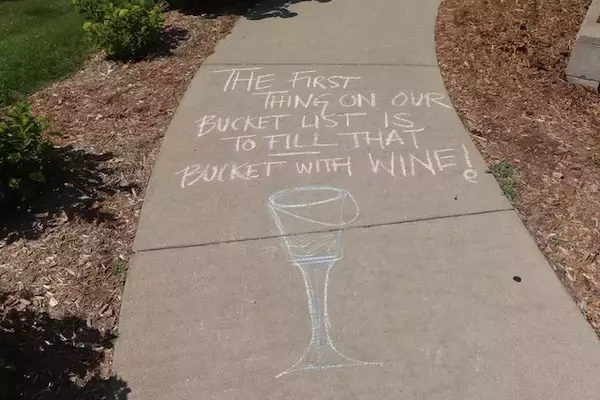 THE FIRST
THING ON OUR
BUCKET LIST IS
TO FILL THAT
BUCKET WITH WINE!